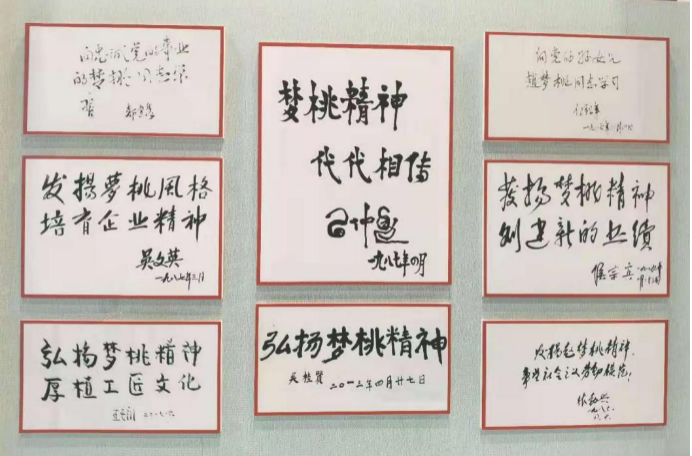 向忠诚党的事业
的梦桃同志学
习
发揚夢桃風格
培育企业精神
吴文英
一九八七年三月
弘扬梦桃精神
厚植工匠文化
梦桃精神
代代相传
习仲勋
一九八七年四月
弘扬梦桃精神
吴桂贤
二〇一三年四月廿七日
向党的好女儿
赵梦桃同志学习
發扬梦桃精神
创建新的业绩
发扬赵梦桃精神，
争当社会主义劳动模范！